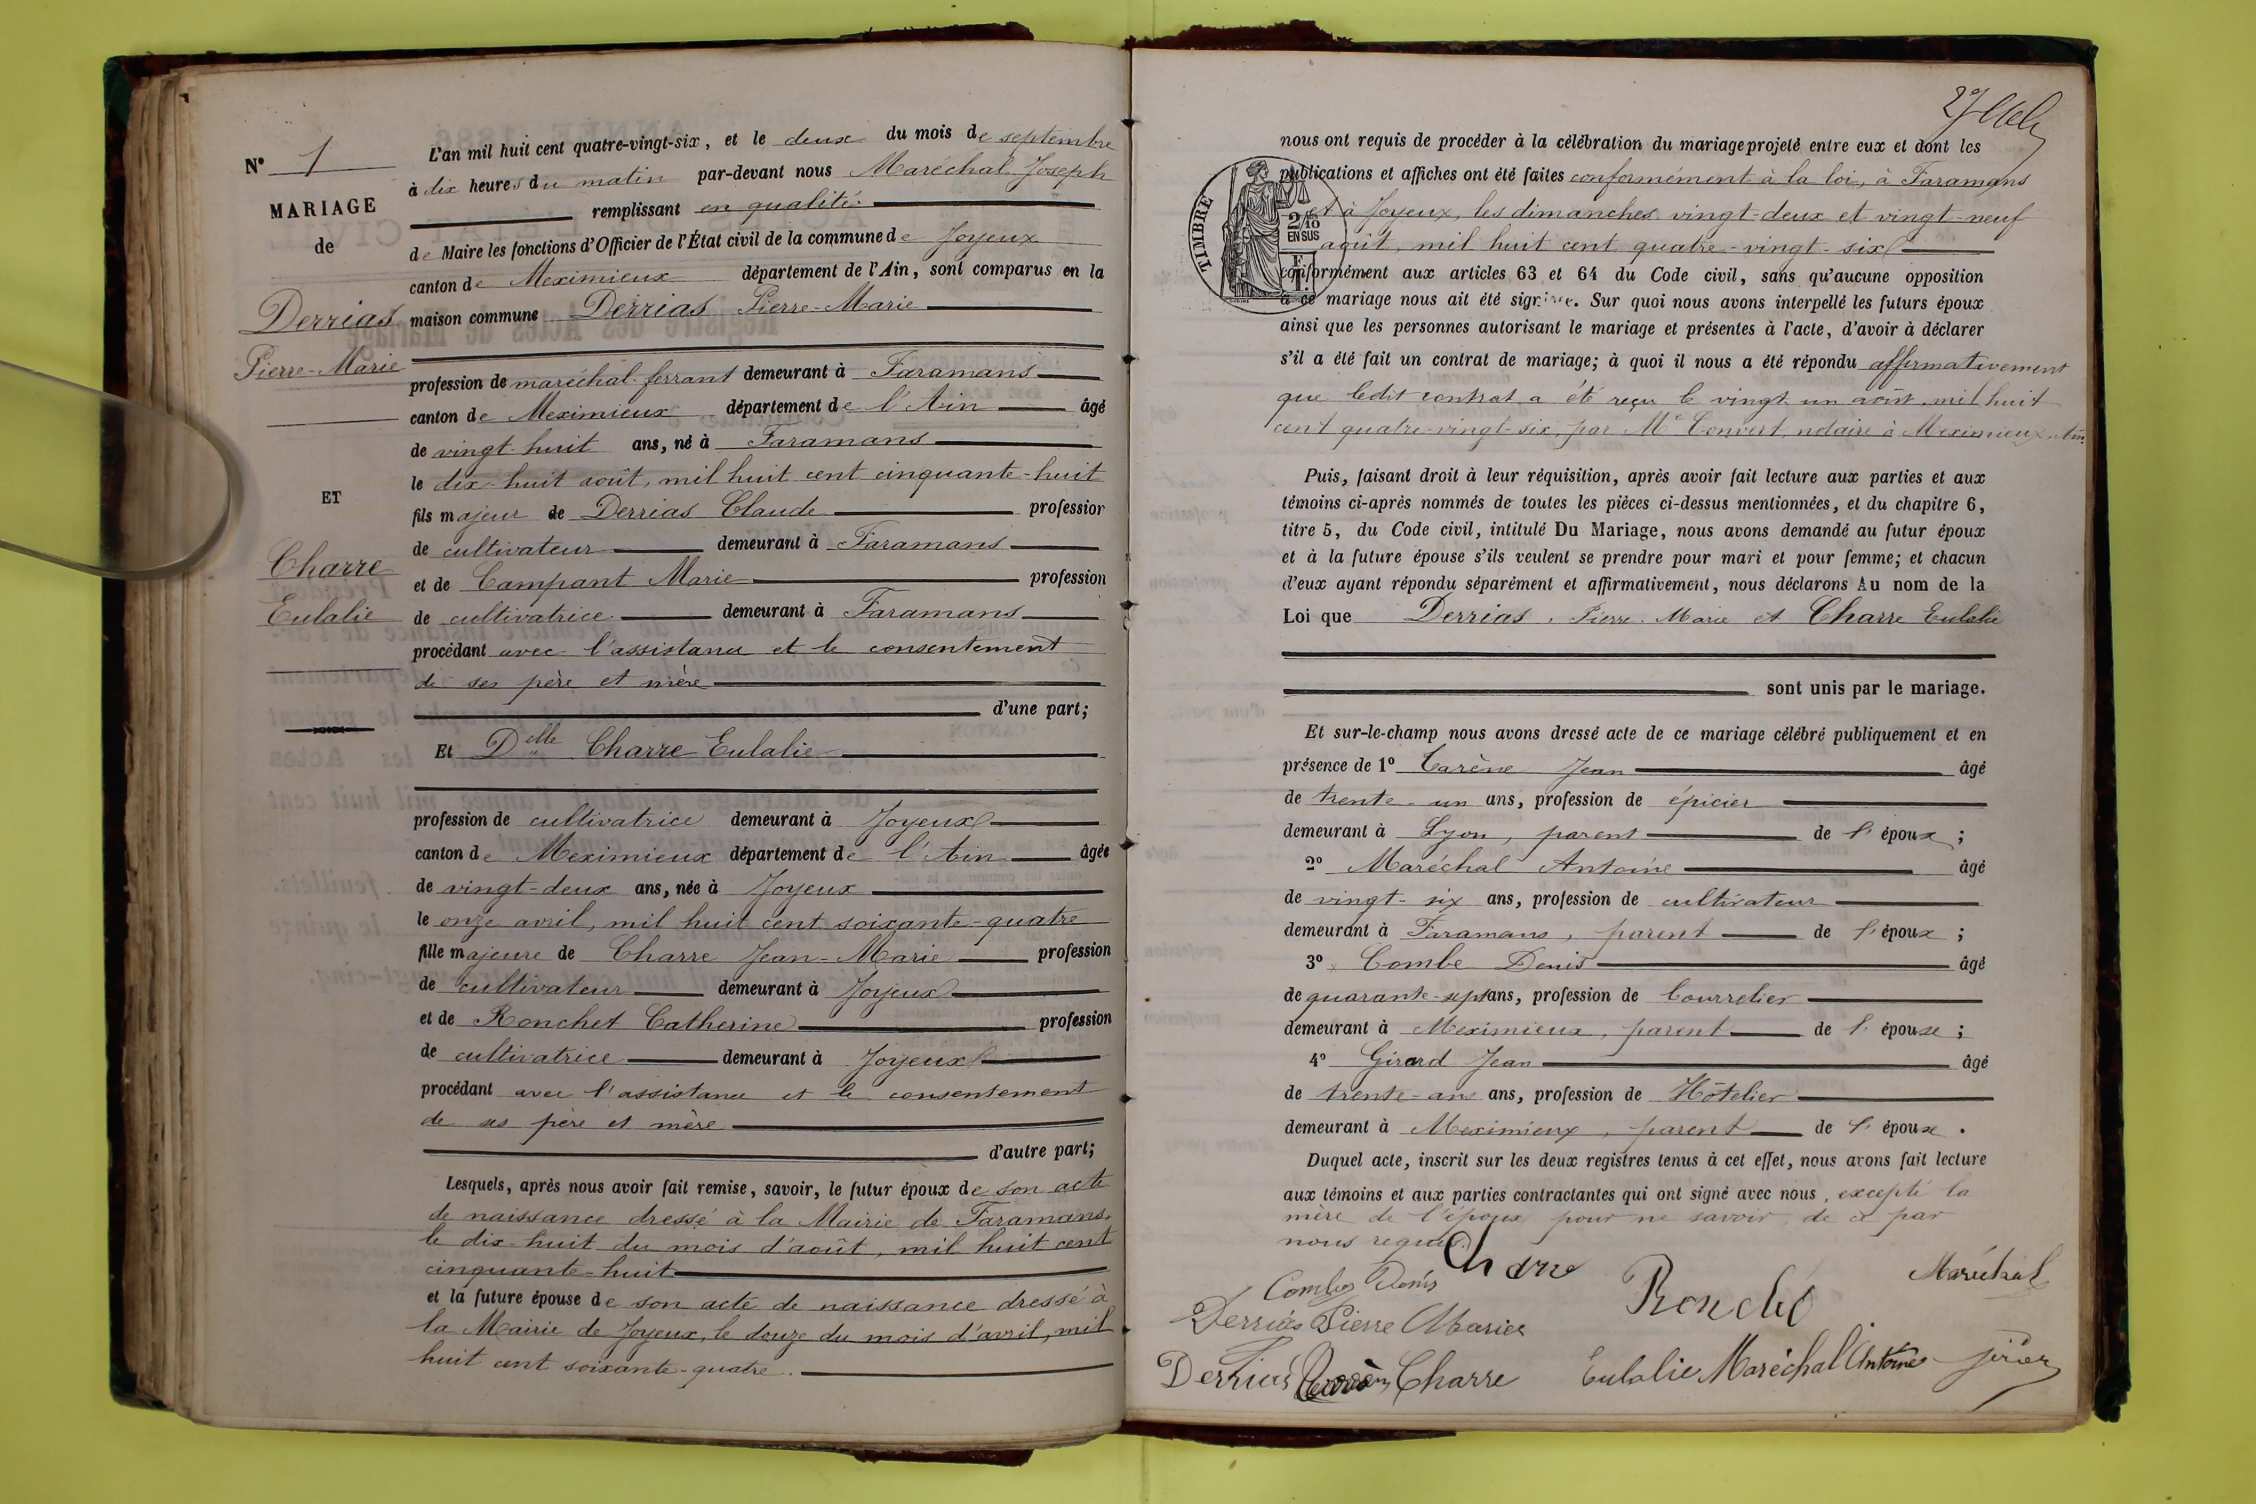 N° 1
MARIAGE
de
Derrias
Pierre-Marie
ET
Charre
Eulalie
L'an mil huit cent quatre-vingt-six, et le deux du mois de septembre
à dix heures du matin par-devant nous Maréchal Joseph
remplissant en qualité
de Maire les fonctions d'Officier de l'État civil de la commune de Joyeux
canton de Meximieux département de l'Ain, sont comparus en la
maison commune Derrias Pierre-Marie
profession de maréchal-ferrant demeurant à Faramans
canton de Meximieux département de l'Ain âgé
de vingt-huit ans, né à Faramans
le dix-huit août, mil huit cent cinquante-huit
fils majeur de Derrias Claude profession
de cultivateur demeurant à Faramans
et de Campant Marie profession
de cultivatrice demeurant à Faramans
procédant avec l'assistance et le consentement
de ses père et mère
d'une part;
Et Delle Charre Eulalie
profession de cultivatrice demeurant à Joyeux
canton de Meximieux département de l'Ain âgée
de vingt-deux ans, née à Joyeux
le onze avril, mil huit cent soixante-quatre
fille majeure de Charre Jean-Marie profession
de cultivateur demeurant à Joyeux
et de Ronchet Catherine profession
de cultivatrice demeurant à Joyeux
procédant avec l'assistance et le consentement
de ses père et mère
d'autre part;
Lesquels, après nous avoir fait remise, savoir, le futur époux de son acte
de naissance dressé à la Mairie de Faramans,
le dix-huit du mois d'août, mil huit cent
cinquante-huit
et la future épouse de son acte de naissance dressé à
la Mairie de Joyeux, le douze du mois d'avril, mil
huit cent soixante-quatre.
nous ont requis de procéder à la célébration du mariage projeté entre eux et dont les
publications et affiches ont été faites conformément à la loi, à Faramans
et à Joyeux, les dimanches vingt-deux et vingt-neuf
août, mil huit cent quatre-vingt-six
conformément aux articles 63 et 64 du Code civil, sans qu'aucune opposition
à ce mariage nous ait été signifiée. Sur quoi nous avons interpellé les futurs époux
ainsi que les personnes autorisant le mariage et présentes à l'acte, d'avoir à déclarer
s'il a été fait un contrat de mariage; à quoi il nous a été répondu affirmativement
que ledit contrat a été reçu le vingt un août, mil huit
cent quatre-vingt-six, par Me Convert, notaire à Meximieux, Ain.
TIMBRE
2/10
EN SUS
Puis, faisant droit à leur réquisition, après avoir fait lecture aux parties et aux
témoins ci-après nommés de toutes les pièces ci-dessus mentionnées, et du chapitre 6,
titre 5, du Code civil, intitulé Du Mariage, nous avons demandé au futur époux
et à la future épouse s'ils veulent se prendre pour mari et pour femme; et chacun
d'eux ayant répondu séparément et affirmativement, nous déclarons Au nom de la
Loi que Derrias, Pierre-Marie et Charre Eulalie
sont unis par le mariage.
Et sur-le-champ nous avons dressé acte de ce mariage célébré publiquement et en
présence de 1° Carène Jean âgé
de trente-un ans, profession de épicier
demeurant à Lyon, parent de l'époux;
2° Maréchal Antoine âgé
de vingt-six ans, profession de cultivateur
demeurant à Faramans, parent de l'époux;
3° Combe Denis âgé
de quarante-sept ans, profession de Bourrelier
demeurant à Meximieux, parent de l'épouse;
4° Girard Jean âgé
de trente-ans ans, profession de Hôtelier
demeurant à Meximieux, parent de l'épouse.
Duquel acte, inscrit sur les deux registres tenus à cet effet, nous avons fait lecture
aux témoins et aux parties contractantes qui ont signé avec nous, excepté la
mère de l'époux pour ne savoir, de ce par
nous requis.
Charre
Maréchal
Combe Denis
Ronché
Derrias Pierre Marie
Derrias
Charre Eulalie
Maréchal Antoine